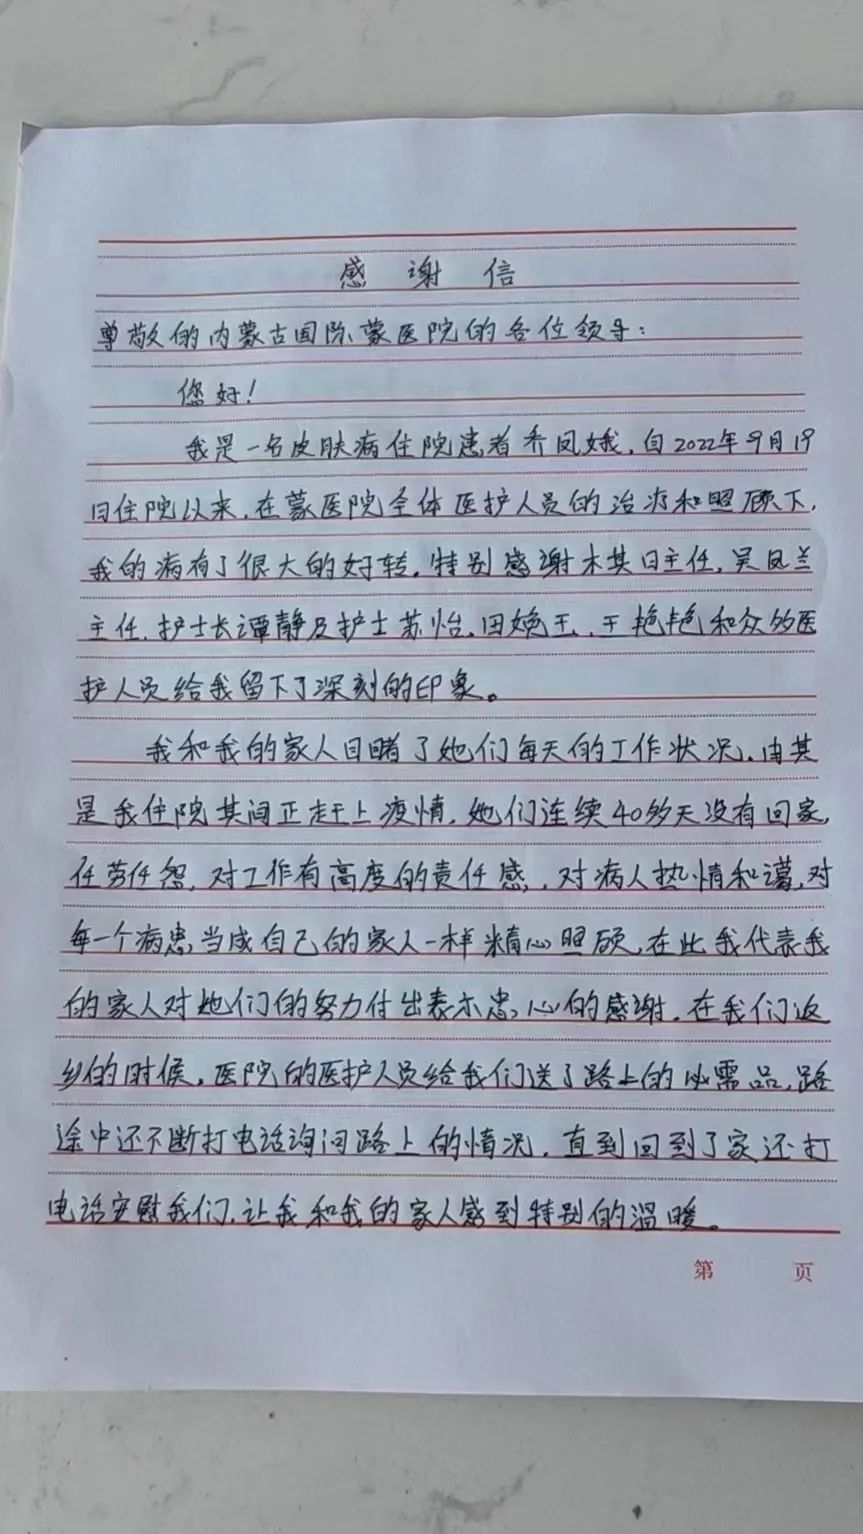 感谢信
尊敬的内蒙古国际蒙医院的各位领导：
您好！
我是一名皮肤病住院患者乔凤娥，自2022年9月19
日住院以来，在蒙医院全体医护人员的治疗和照顾下，
我的病有了很大的好转。特别感谢木其日主任，吴凤兰
主任，护士长谭静及护士苏怡、田婉玉、王艳艳和众多医
护人员给我留下了深刻的印象。
我和我的家人目睹了她们每天的工作状况。由其
是我住院其间正赶上疫情，她们连续40多天没有回家，
任劳任怨，对工作有高度的责任感，对病人热情和蔼，对
每一个病患当成自己的家人一样精心照顾，在此我代表我
的家人对她们的努力付出表示忠心的感谢。在我们返
乡的时候，医院的医护人员给我们送了路上的必需品，路
途中还不断打电话询问路上的情况，直到回到了家还打
电话安慰我们，让我和我的家人感到特别的温暖。
第 页